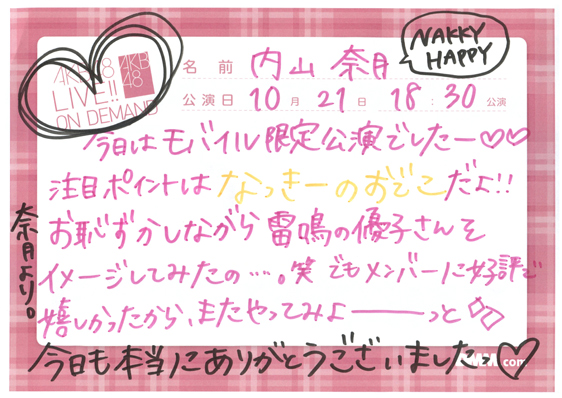 AKB48
LIVE!!
ON DEMAND
AKB
48
名前 内山 奈月
NAKKY
HAPPY
公演日 10月21日 18:30 公演
今日はモバイル限定公演でしたー♡♡
注目ポイントは なっきーのおでこだよ!!
お恥ずかしながら 雷鳴の優子さんを
イメージしてみたの…。笑 でもメンバーに好評で
嬉しかったから、またやってみよーーっと
奈月より。
今日も本当にありがとうございました♡
.com